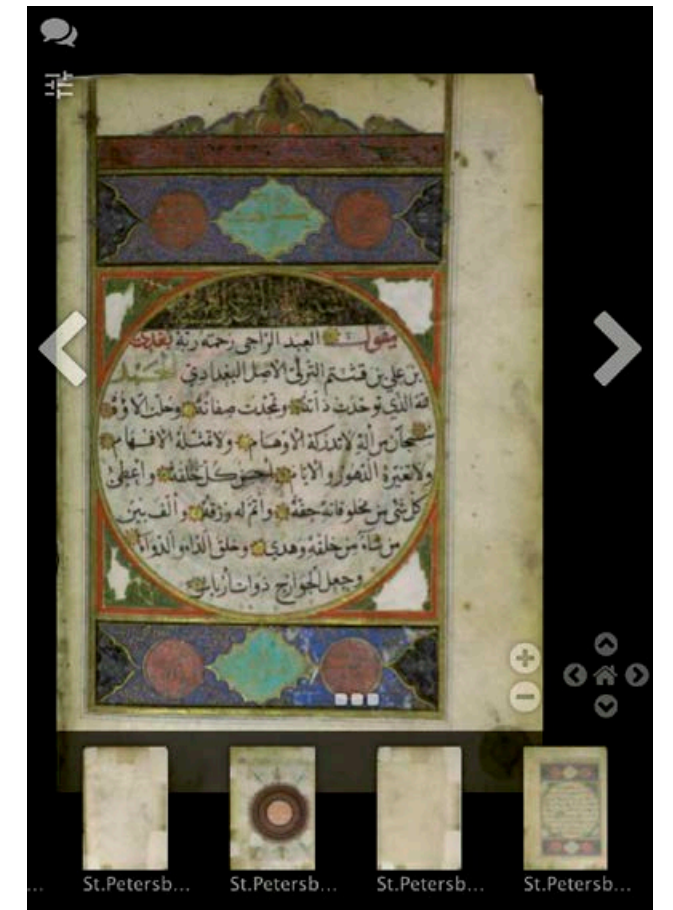 يقول العبد الراجي رحمة ربه بغدي
بن علي بن قشتم التركي الاصل البغدادي الحمد
لله الذي توحدت ذاته وتمجدت صفاته وجلت الاؤه
سبحان من اله لا تدركه الاوهام ولا تمثله الافهام
ولا تغيره الدهور والايام احسن كل خلقه واعطى
كل شئ من مخلوقاته حقه واتم له رزقه والف بين
من شاء من خلقه وهدى وخلق الداء والدواء
وجعل الجوارح ذوات
... St.Petersb... St.Petersb... St.Petersb... St.Petersb...